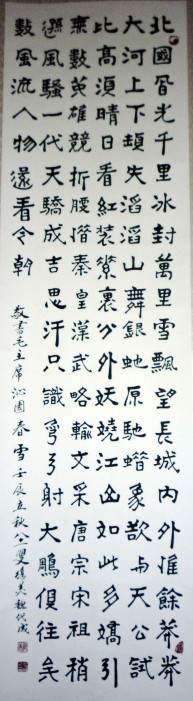 北國風光千里冰封萬里雪飄望長城内外惟餘莽莽
大河上下頓失滔滔山舞銀蛇原馳蜡象欲与天公試
比高須晴日看紅裝素裹分外妖嬈江山如此多嬌引
無數英雄競折腰惜秦皇漢武略輸文采唐宗宋祖稍
遜風騷一代天驕成吉思汗只識彎弓射大鵰俱往矣
數風流人物還看今朝
敬書毛主席沁園春雪壬辰立秋